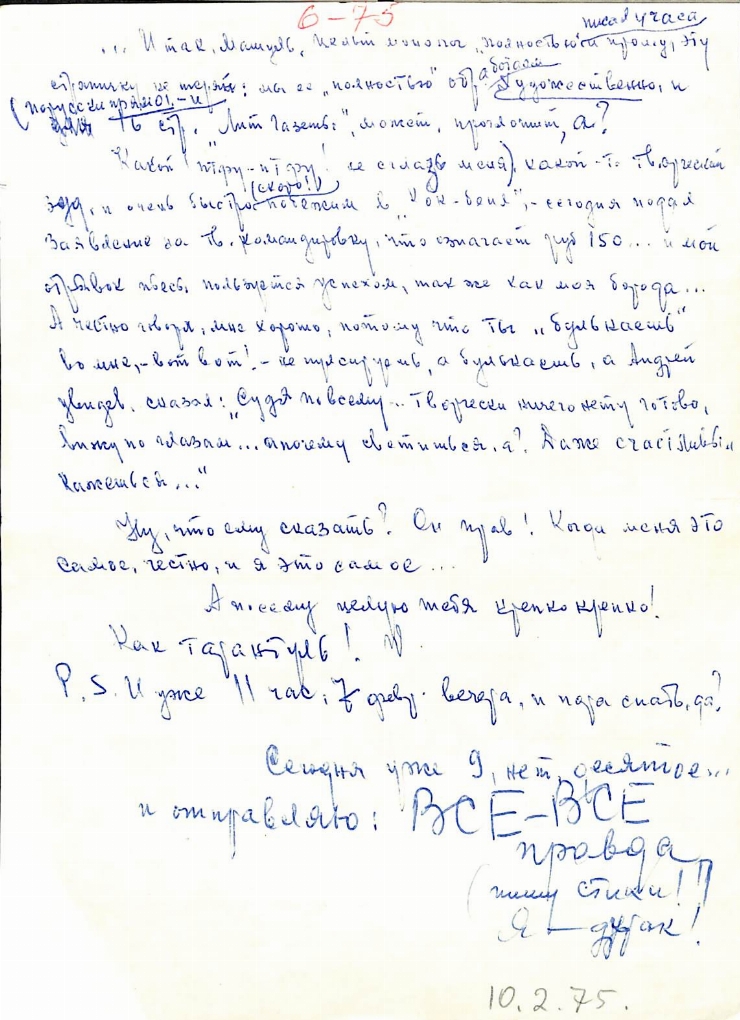 6-75
писал 4 часа
... И так, Машуль, целый монолог „полностью" и прошу, эту
страничку не теряй: мы её „полностью" обработаем художественно, и
(по русски прямо!-и)
для 16 стр. „Лит Газеты", может, проглотит, а?
Какой „птфу-птфу! (не сглазь меня), какой-то творческий
зуд, и очень быстро (скоро!) побежим в , - сегодня подал
Заявление на тв. командировку, что означает руб 150... и мой
отрывок пьесы пользуется успехом, так же как моя борода...
А честно говоря, мне хорошо, потому что ты „булькаешь"
во мне, - вот вот! - не пульсируешь, а булькаешь, а Андрей
увидев, сказал: „Судя по всему... творчески ничего нету готово,
вижу по глазам... а почему светишься, а? Даже счастливым
кажешься..."
Ну, что ему сказать? Он прав! Когда меня это
самое, честно, и я это самое...
А посему целую тебя крепко крепко!
Как тарантуль!
P.S. И уже 11 час. 7 февр. вечера, и пора спать, да?
Сегодня уже 9, нет, десятое...
и отправляю: ВСЕ-ВСЕ
правда
(пишу стихи!!)
Я - дурак!
10.2.75.